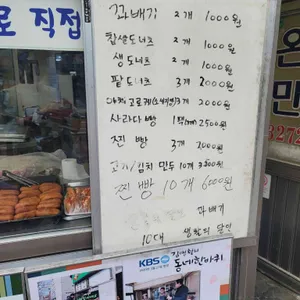 로 직접
꽈배기 2개 1000원
찹쌀도너츠 2개 1000원
생도너츠 2개 1000원
팥도너츠 3개 2000원
고로케 3개 2000원
사라다빵 1팩 2500원
찐빵 3개 2000원
고기/김치 만두 10개
찐빵 10개 6000원
꽈배기
10대 생활의 달인
KBS
김영철의
동네한바퀴
온
만
327